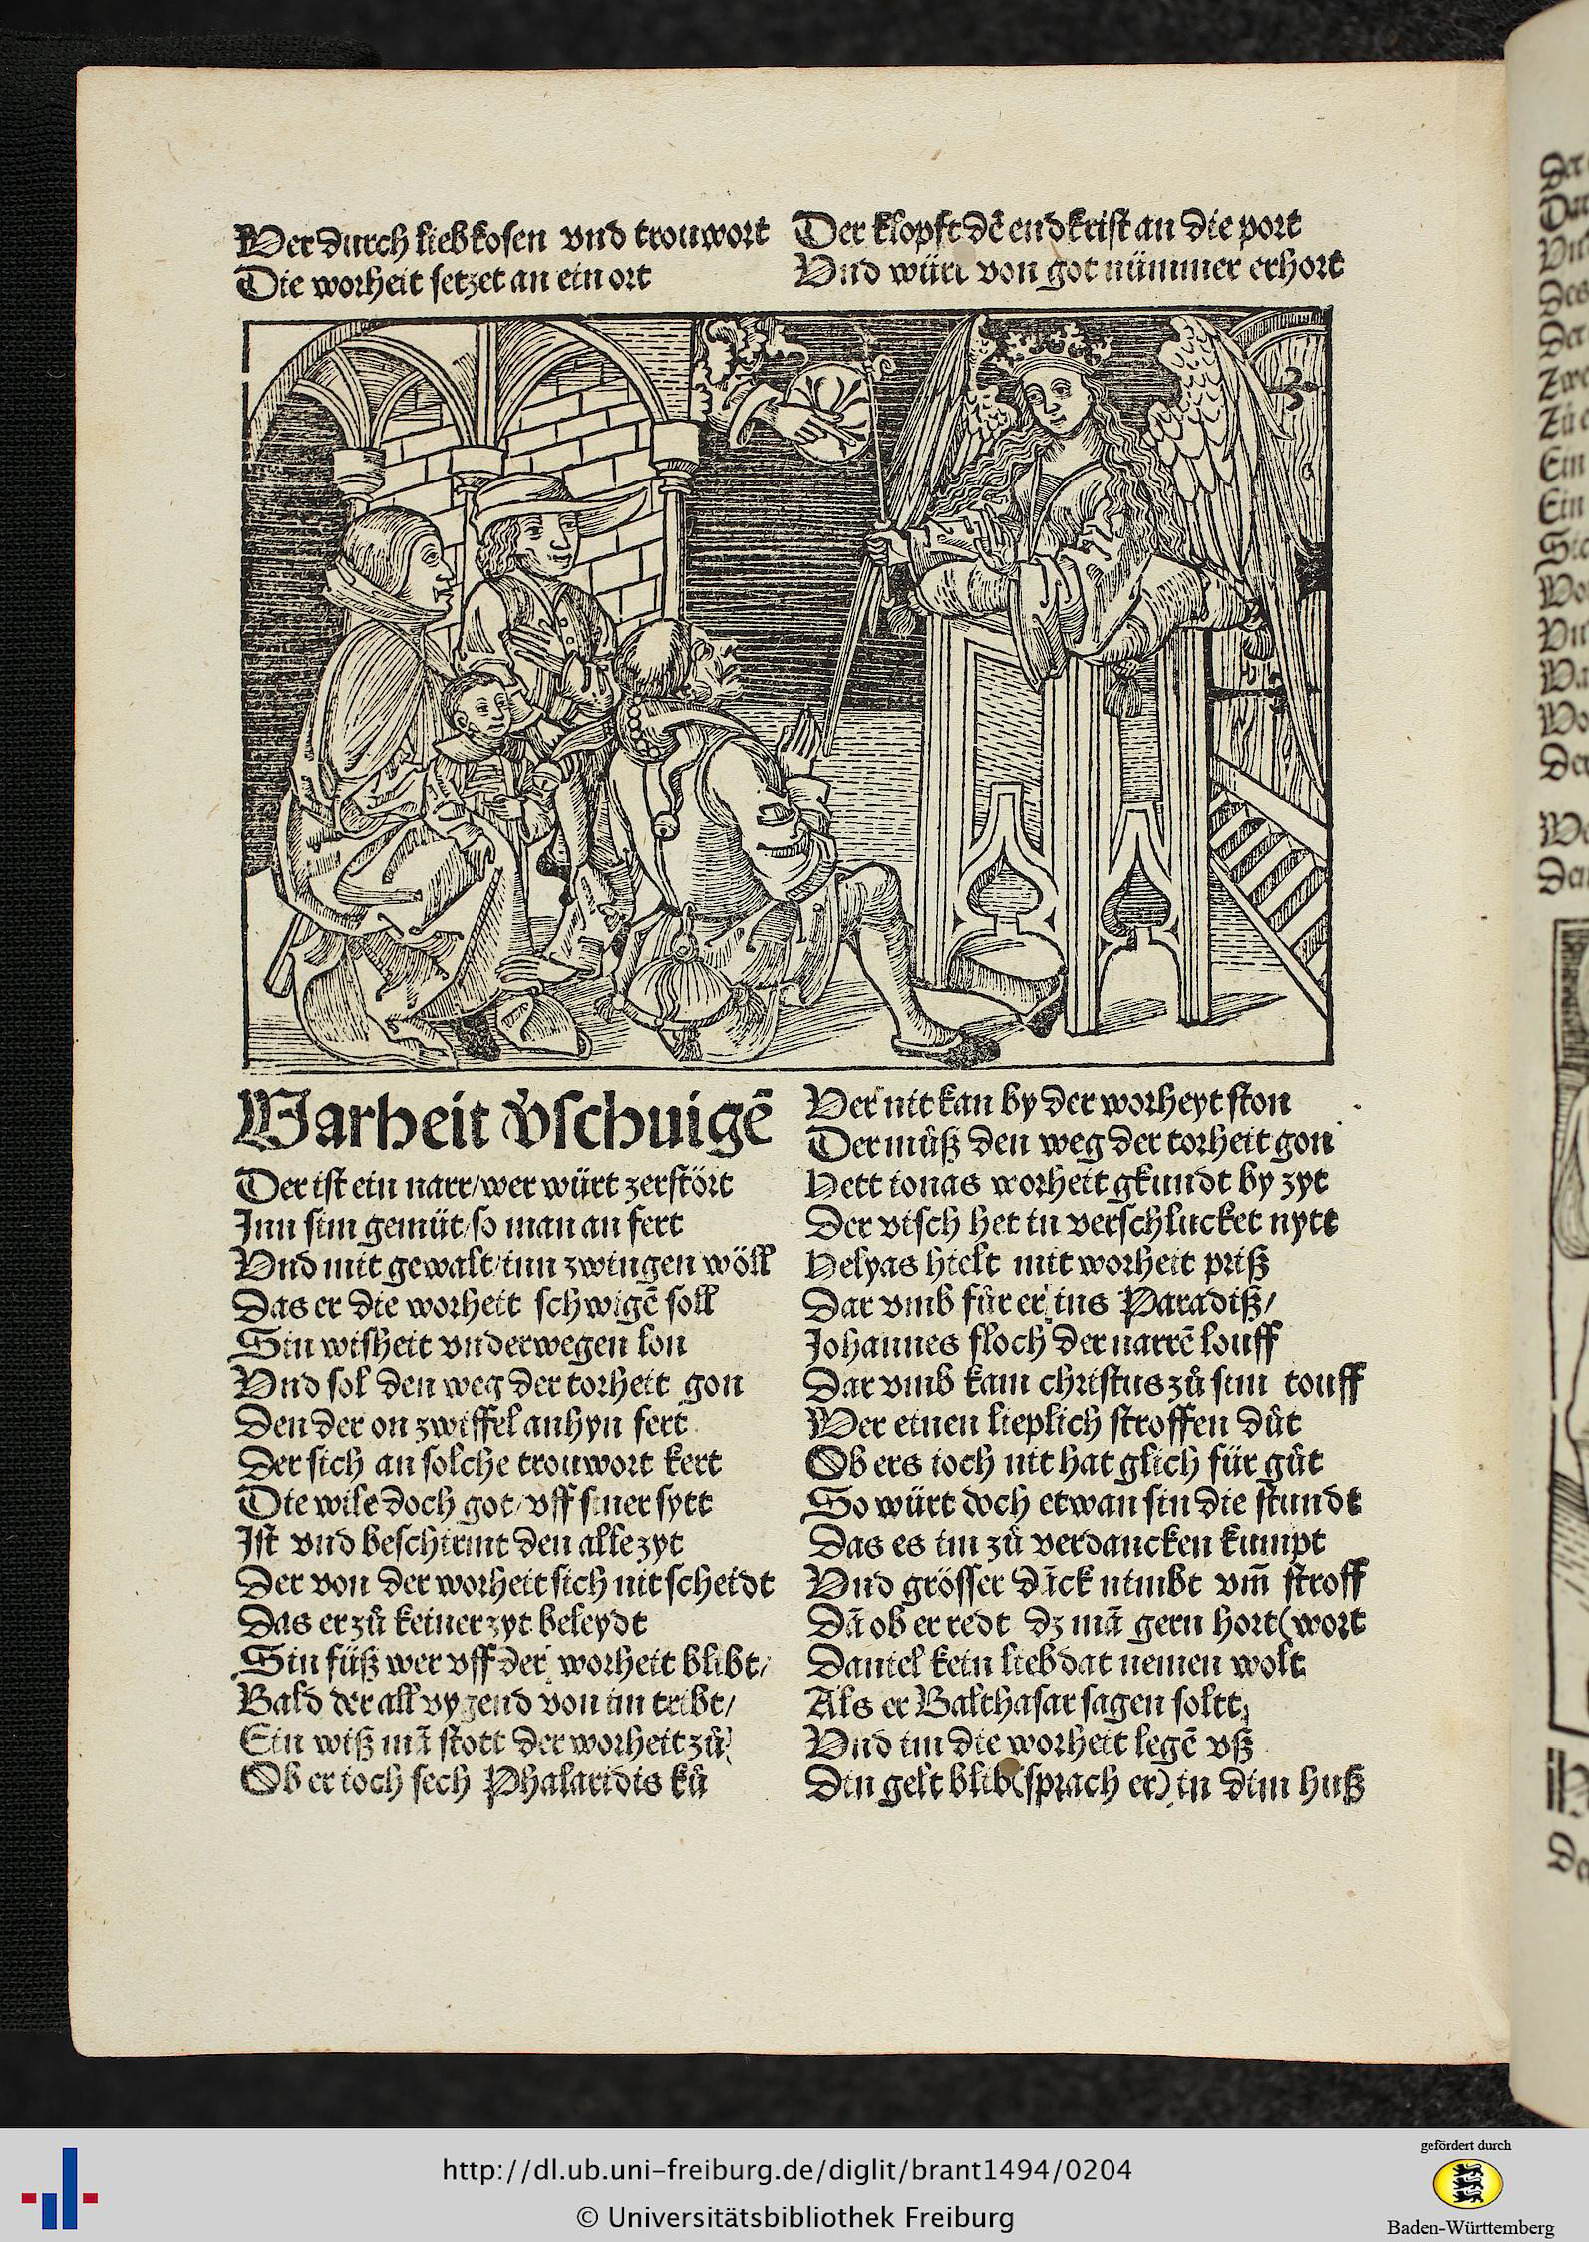 Wer durch liebkosen vnd trouwort
Die worheit setzet an ein ort
Der klopft dē endkrist an die port
Vnd würt von got nümmer erhort
Warheit v̄schuigē
Der ist ein narr/wer würt zerstört
Jnn sim gemüt/so man an fert
Vnd mit gewalt/inn zwingen wöll
Das er die worheit schwigē soll
Sin wisheit vnderwegen lon
Vnd sol den weg der torheit gon
Den der on zwiffel anhyn fert
Der sich an solche trouwort kert
Die wile doch got/vff siner sytt
Jst vnd beschirmt den alle zyt
Der von der worheit sich nit scheidt
Das er zů keiner zyt beleydt
Sin füß wer vff der worheit blibt/
Bald der all vygend von im tribt/
Ein wiß mā stott der worheit zů/
Ob er ioch sech Phalaridis ků
Wer nit kan by der worheyt ston
Der můß den weg der torheit gon
Hett ionas worheit gkundt by zyt
Der visch het in verschlucket nytt
Helyas hielt mit worheit priß
Dar vmb fůr er ins Paradiß/
Johannes floch der narrē louff
Dar vmb kam christus zů sim touff
Wer einen lieplich stroffen důt
Ob ers ioch nit hat glich für gůt
So würt doch etwan sin die stundt
Das es im zů verdancken kumpt
Vnd grösser dāck nimbt vm̄ stroff
Dā ob er redt dz mā gern hort(wort
Daniel kein lieb dat nemen wolt
Als er Balthasar sagen soltt,
Vnd im die worheit legē vß
Din gelt blib(sprach er) in dim huß
http://dl.ub.uni-freiburg.de/diglit/brant1494/0204
© Universitätsbibliothek Freiburg
gefördert durch
Baden-Württemberg